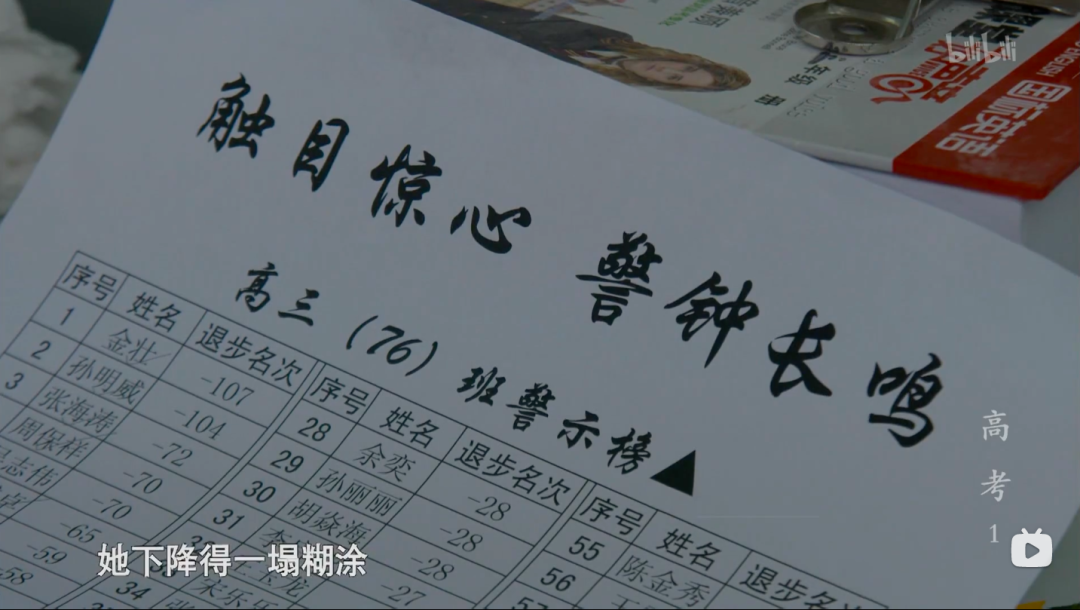 bilibili
国际英语
触目惊心 警钟长鸣
高三（76）班警示榜▲
序号 姓名 退步名次
1 金壮 -107
2 孙明威 -104
3 张海涛 -72
周保祥 -70
志伟 -70
-65
-59
-58
序号 姓名 退步名次
28 余奕 -28
29 孙丽丽 -28
30 胡焱海 -28
31 -27
34
序号 姓名 退步名次
55 陈金秀
56
57
高考1
她下降得一塌糊涂